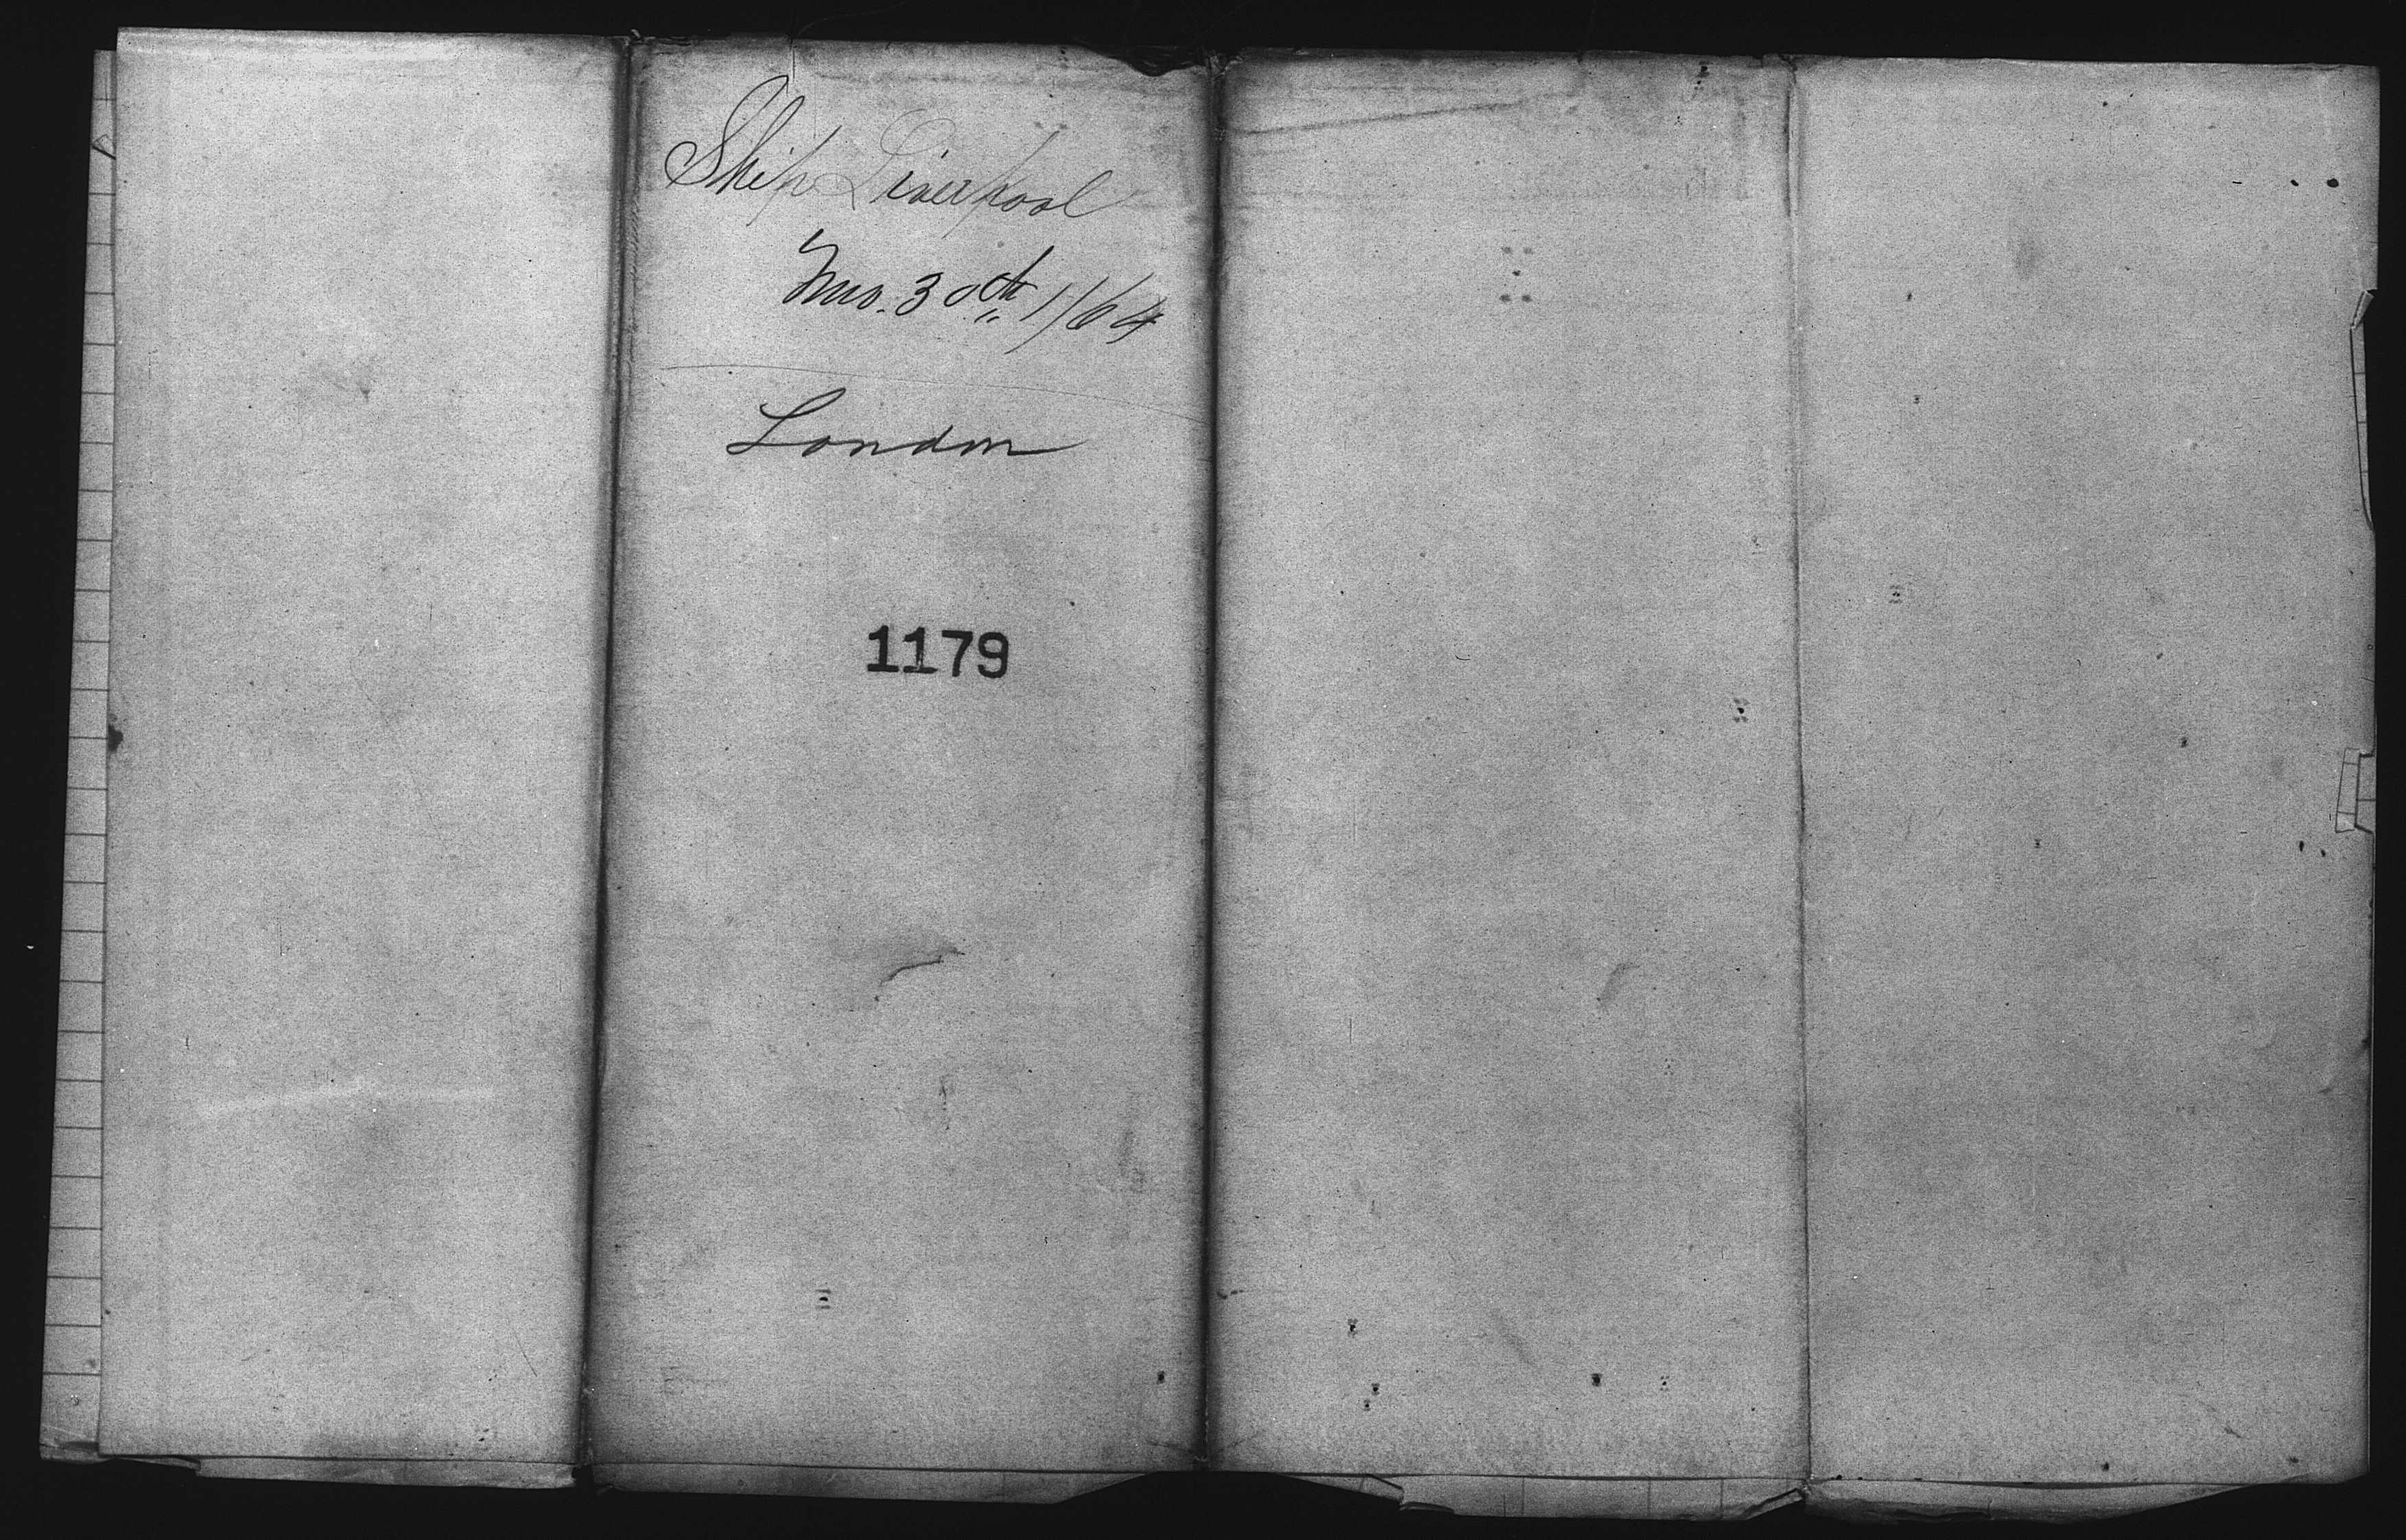 Ship Liverpool
30th 1/64
London
1179